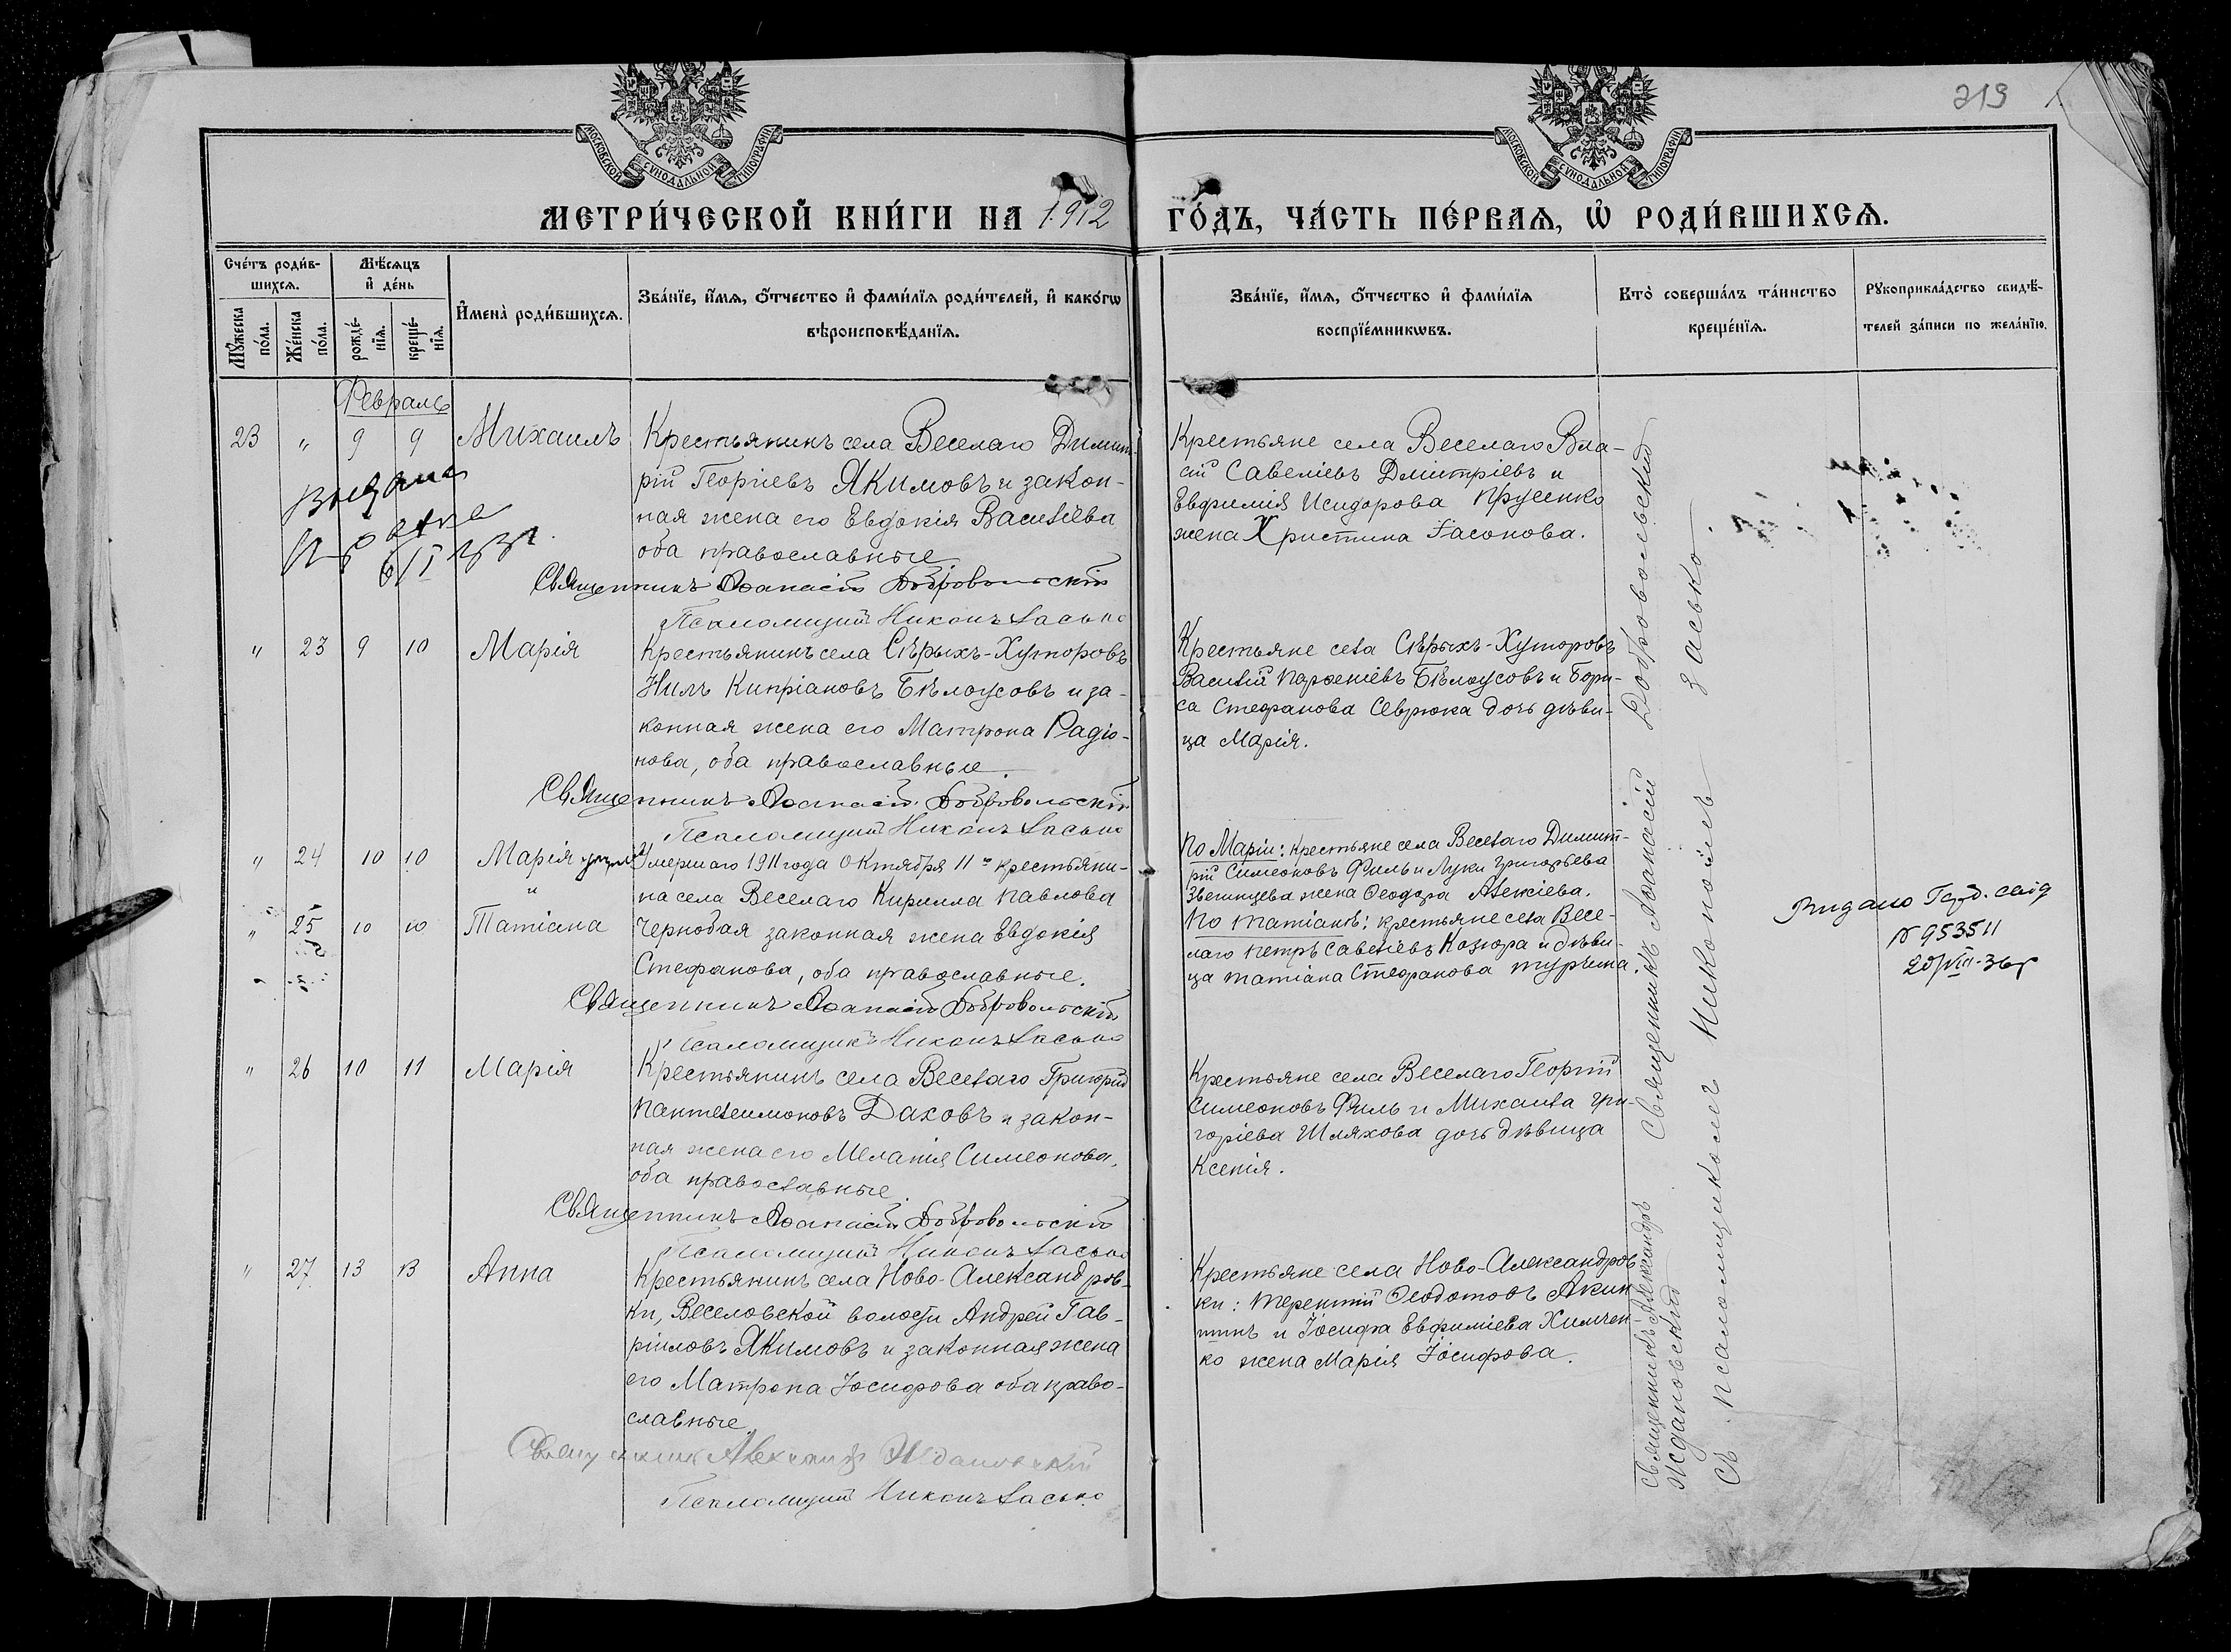 219
МОСКОВСКОЙ СУНОДАЛЬНОЙ ТИПОГРАФІИ
МОСКОВСКОЙ СУНОДАЛЬНОЙ ТИПОГРАФІИ
МЕТРИ́ЧЕСКОЙ КНИ́ГИ НА 1912 ГО́ДЪ, ЧА́СТЬ ПЕ́РВАѦ, Ѡ҆ РОДИ́ВШИХСѦ.
Сче́тъ роди́в-
шихсѧ.
Мꙋ́жеска по́ла.
Же́нска по́ла.
Мѣ́сѧцъ
и҆ де́нь
рожде́-
нїѧ.
креще́-
нїѧ.
И҆мена̀ роди́вшихсѧ.
Зва́нїе, и҆́мѧ, ѻ҆́тчество и҆ фами́лїѧ роди́телей, и҆ како́гѡ
вѣроисповѣ́данїѧ.
Зва́нїе, и҆́мѧ, ѻ҆́тчество и҆ фами́лїѧ
воспрїе́мникѡвъ.
Кто̀ соверша́лъ та́инство
креще́нїѧ.
Рꙋкоприкла́дство свидѣ́-
телей за́писи по жела́нїю.
Февраль
23 " 9 9 Михаилъ
Крестьянинъ села Веселаго Димит-
рій Георгіевъ Якимовъ и закон-
ная жена его Евдокія Васильева
оба православные.
Священникъ Аѳанасій Добровольскій
Псаломщикъ Никонъ Засько
Крестьяне села Веселаго Вла-
сій Савеліевъ Дмитріевъ и
Евфимія Исидорова Прусенко
жена Христина Іасонова.
" 23 9 10 Марія
Крестьянинъ села Сѣрыхъ-Хуторовъ
Нилъ Кипріановъ Бѣлоусовъ и за-
конная жена его Матрона Радіо-
нова, оба православные.
Священникъ Аѳанасій Добровольскій
Псаломщикъ Никонъ Засько
Крестьяне села Сѣрыхъ-Хуторовъ
Василій Парѳеніевъ Бѣлоусовъ и Бори-
са Стефанова Севрюка дочь дѣви-
ца Марія.
" 24 10 10 Марія
" 25 10 10 Татіана
Умершаго 1911 года Октября 11го крестьяни-
на села Веселаго Кирилла Павлова
Чернобая законная жена Евдокія
Стефанова, оба православные.
Священникъ Аѳанасій Добровольскій
Псаломщикъ Никонъ Засько
По Маріи: крестьяне села Веселаго Димит-
рій Симеоновъ Филь и Луки Григорьева
Звегинцева жена Ѳеодора Алексіева.
По Татіанѣ: крестьяне села Весе-
лаго Петръ Савеліевъ Козюра и дѣви-
ца Татіана Стефанова
№ 953511
" 26 10 11 Марія
Крестьянинъ села Веселаго Григорій
Пантелеимоновъ Даховъ и закон-
ная жена его Меланія Симеонова,
оба православные.
Священникъ Аѳанасій Добровольскій
Псаломщикъ Никонъ Засько
Крестьяне села Веселаго Георгій
Симеоновъ Филь и Михаила Гри-
горіева Шляхова дочь дѣвица
Ксенія.
" 27 13 13 Анна
Крестьянинъ села Ново-Александров-
ки, Веселовской волости Андрей Гав-
ріиловъ Якимовъ и законная жена
его Матрона Іосифова оба право-
славные.
Священникъ Александръ Ждановскій
Псаломщикъ Никонъ Засько
Крестьяне села Ново-Александров-
ки: Терентій Ѳеодотовъ Акин-
шинъ и Іосифа Евфиміева Химчен-
ко жена Марія Іосифова.
Священникъ Александръ Ждановскій
Священникъ Аѳанасій Добровольскій
Съ псаломщикомъ Никономъ Засько.